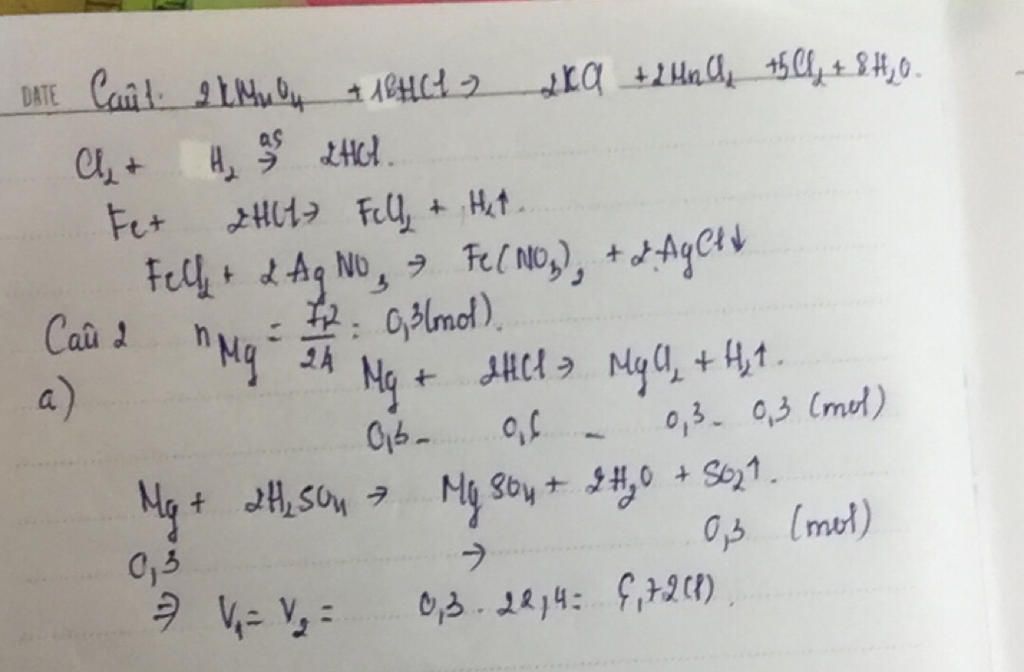 DATE Câu 1. 2KMnO₄ + 16HCl → 2KCl + 2MnCl₂ + 5Cl₂ + 8H₂O.
Cl₂ + H₂ as → 2HCl.
Fe + 2HCl → FeCl₂ + H₂↑.
FeCl₂ + 2AgNO₃ → Fe(NO₃)₂ + 2AgCl↓
Câu 2 nMg = 7,2/24 = 0,3(mol).
a) Mg + 2HCl → MgCl₂ + H₂↑.
0,3 - 0,6 - 0,3 - 0,3 (mol)
Mg + 2H₂SO₄ → MgSO₄ + 2H₂O + SO₂↑.
0,3 → 0,3 (mol)
⇒ V₁ = V₂ = 0,3 . 22,4 = 6,72(l).